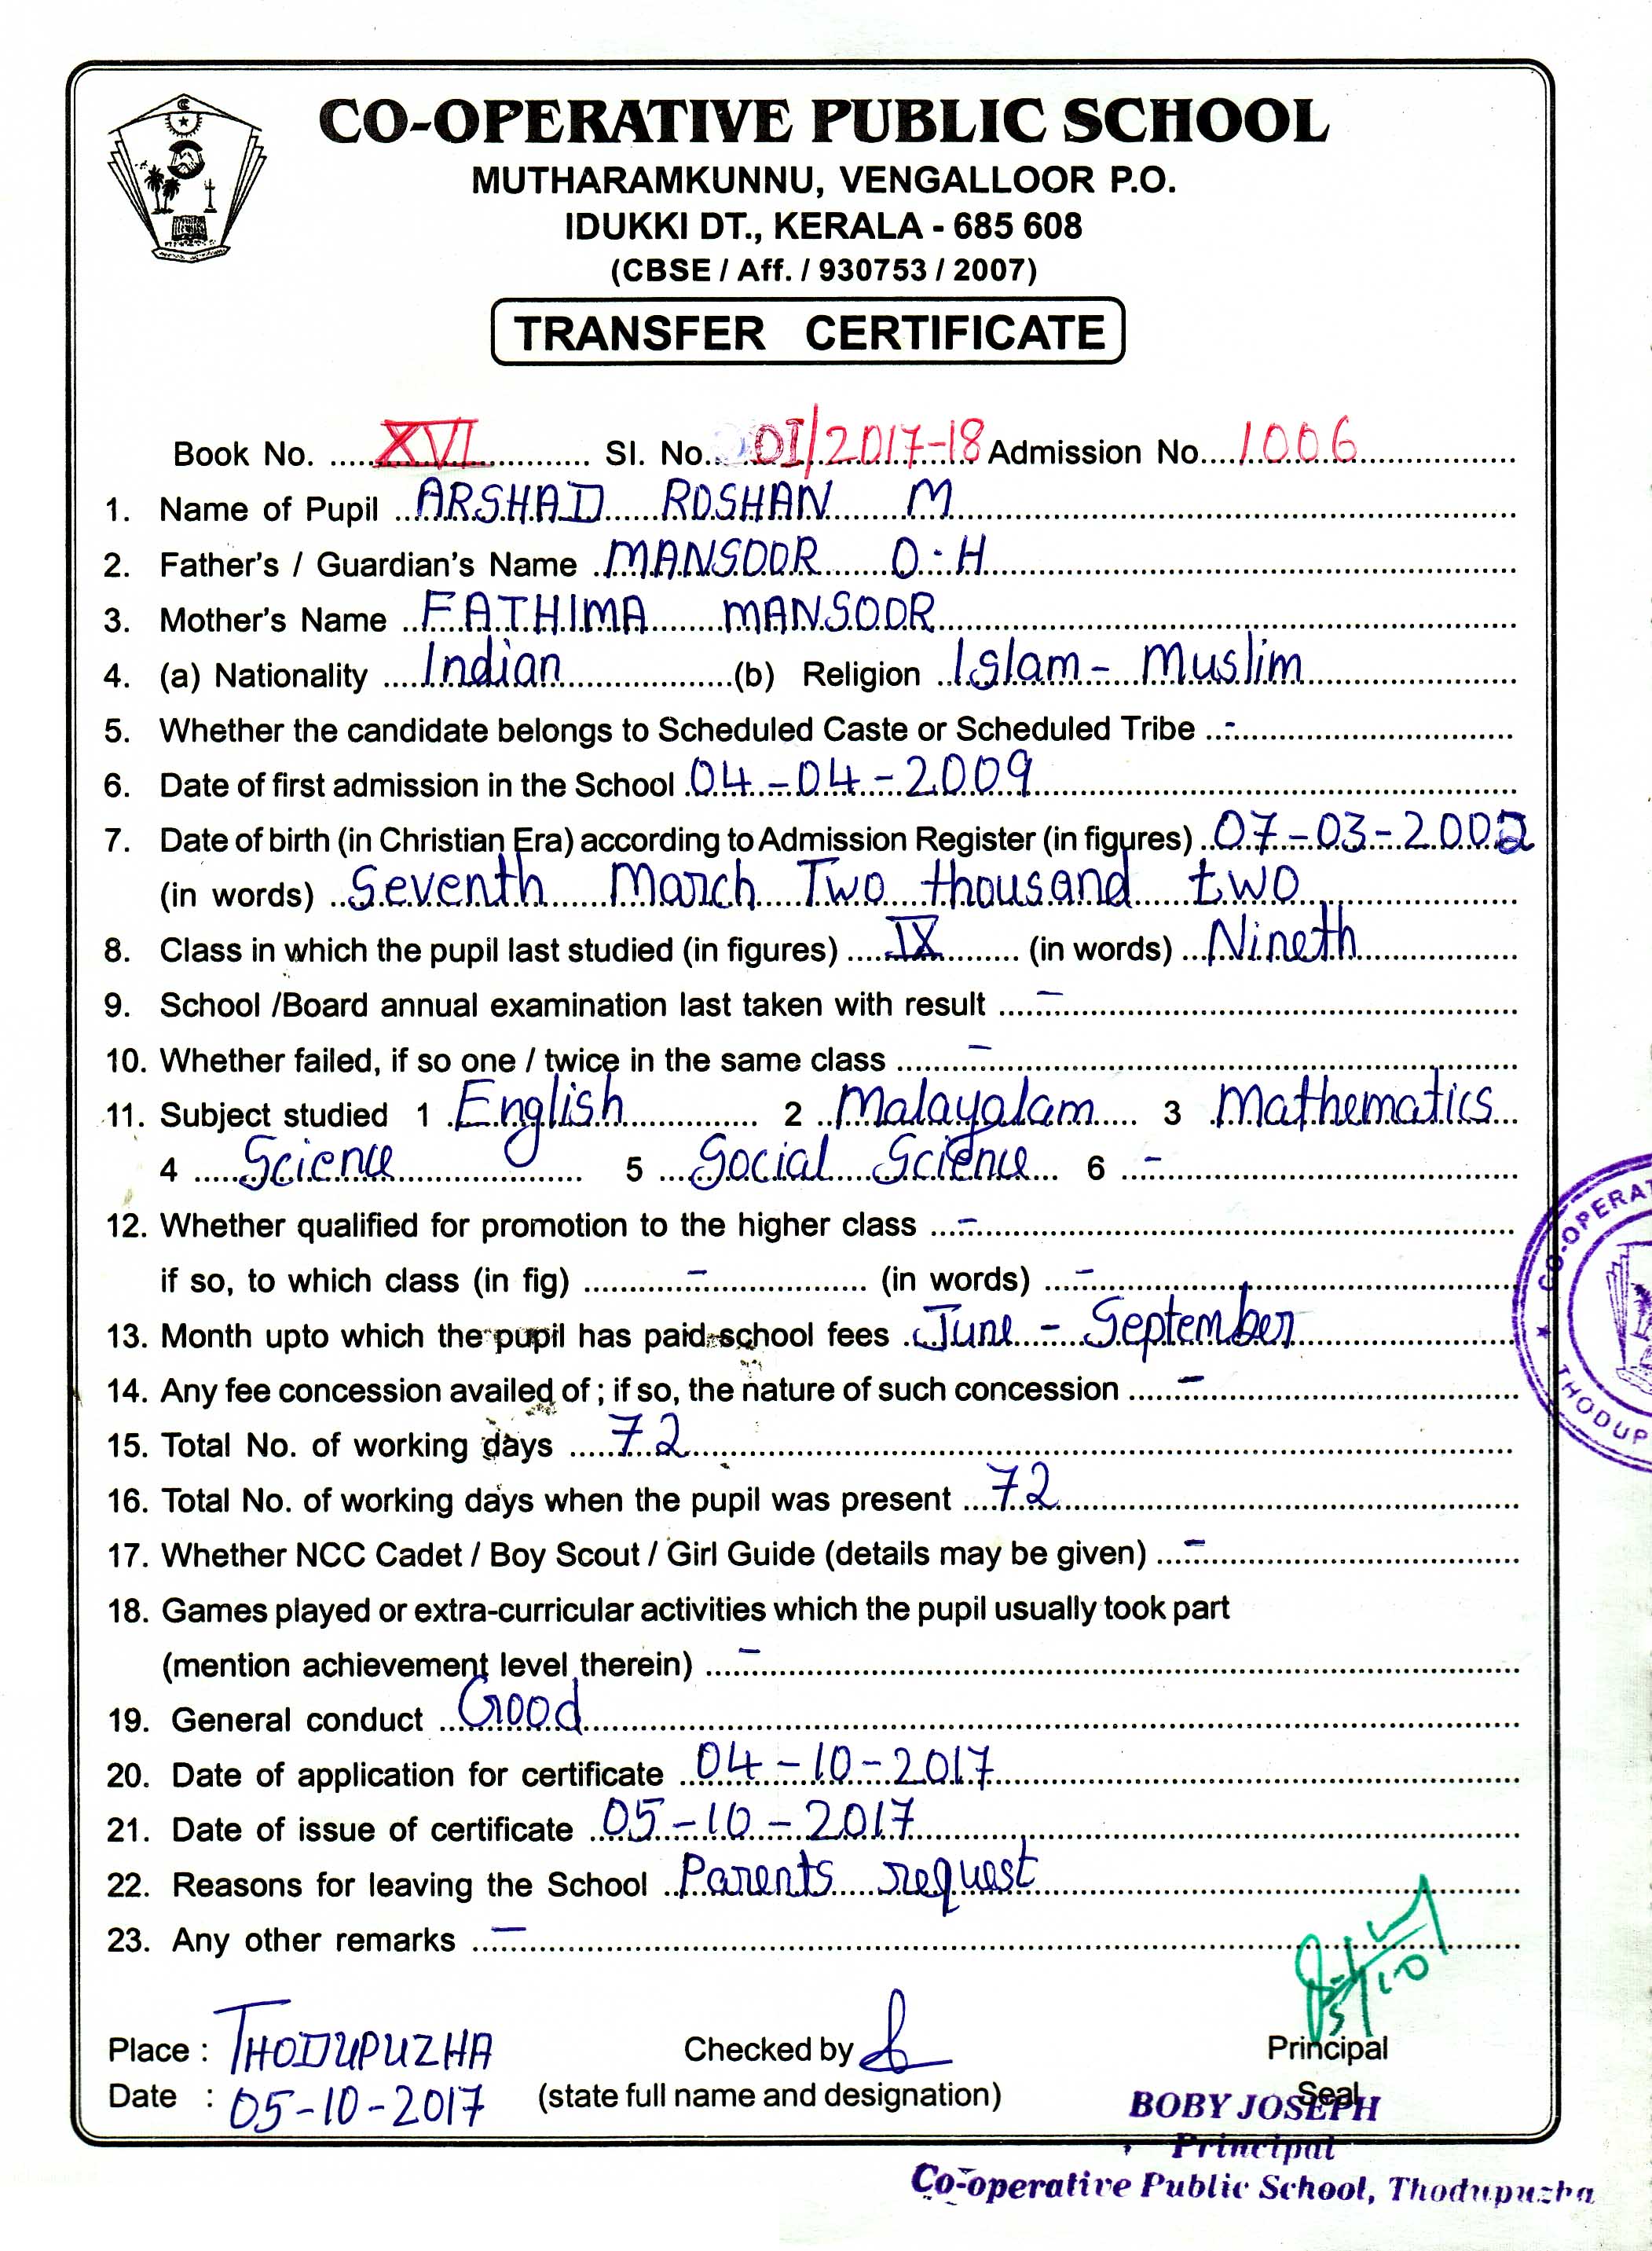 CO-OPERATIVE PUBLIC SCHOOL
MUTHARAMKUNNU, VENGALLOOR P.O.
IDUKKI DT., KERALA - 685 608
(CBSE / Aff. / 930753 / 2007)
TRANSFER CERTIFICATE
Book No. XVI Sl. No. 01/2017-18 Admission No. 1006
1. Name of Pupil ARSHAD ROSHAN M
2. Father's / Guardian's Name MANSOOR O.H
3. Mother's Name FATHIMA MANSOOR
4. (a) Nationality Indian (b) Religion Islam - Muslim
5. Whether the candidate belongs to Scheduled Caste or Scheduled Tribe -
6. Date of first admission in the School 04-04-2009
7. Date of birth (in Christian Era) according to Admission Register (in figures) 07-03-2002
(in words) Seventh March Two thousand two
8. Class in which the pupil last studied (in figures) IX (in words) Nineth
9. School /Board annual examination last taken with result -
10. Whether failed, if so one / twice in the same class -
11. Subject studied 1 English 2 Malayalam 3 Mathematics
4 Science 5 Social Science 6 -
12. Whether qualified for promotion to the higher class -
if so, to which class (in fig) - (in words) -
13. Month upto which the pupil has paid school fees June - September
14. Any fee concession availed of ; if so, the nature of such concession -
15. Total No. of working days 72
16. Total No. of working days when the pupil was present 72
17. Whether NCC Cadet / Boy Scout / Girl Guide (details may be given) -
18. Games played or extra-curricular activities which the pupil usually took part
(mention achievement level therein) -
19. General conduct Good
20. Date of application for certificate 04-10-2017
21. Date of issue of certificate 05-10-2017
22. Reasons for leaving the School Parents request
23. Any other remarks -
5/10
Place : THODUPUZHA Checked by Principal
Date : 05-10-2017 (state full name and designation) Seal
BOBY JOSEPH
Principal
Co-operative Public School, Thodupuzha
CO-OPERAT
THODUP